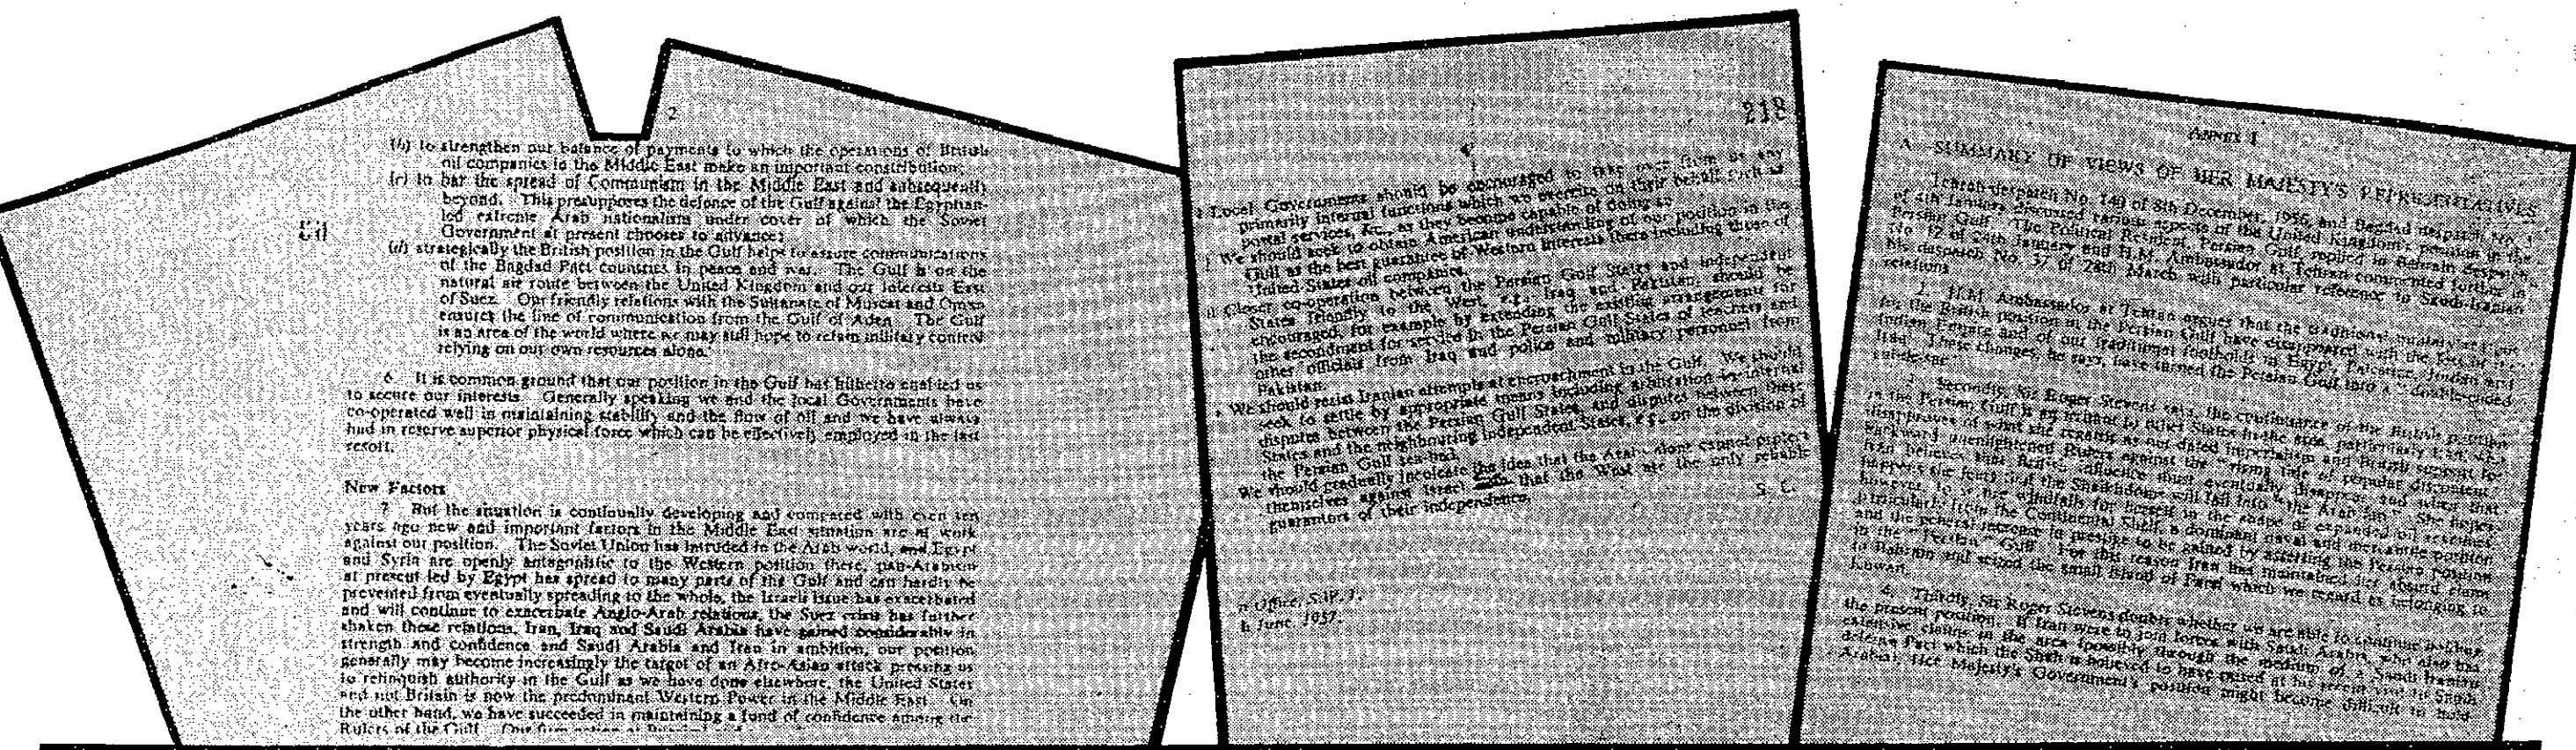 2
(b) to strengthen our balance of payments to which the operations of British
oil companies in the Middle East make an important constribution;
(c) to bar the spread of Communism in the Middle East and subsequently
beyond. This presupposes the defence of the Gulf against the Egyptian-
led extreme Arab nationalism under cover of which the Soviet
Government at present chooses to advance;
(d) strategically the British position in the Gulf helps to assure communications
of the Bagdad Pact countries in peace and war. The Gulf is on the
natural air route between the United Kingdom and our interests East
of Suez. Our friendly relations with the Sultanate of Muscat and Oman
ensures the line of communication from the Gulf of Aden. The Gulf
is an area of the world where we may still hope to retain military control
relying on our own resources alone.
6. It is common ground that our position in the Gulf has hitherto enabled us
to secure our interests. Generally speaking we and the local Governments have
co-operated well in maintaining stability and the flow of oil and we have always
had in reserve superior physical force which can be effectively employed in the last
resort.
New Factors
7. But the situation is continually developing and compared with even ten
years ago new and important factors in the Middle East situation are at work
against our position. The Soviet Union has intruded in the Arab world, and Egypt
and Syria are openly antagonistic to the Western position there, pan-Arabism
at present led by Egypt has spread to many parts of the Gulf and can hardly be
prevented from eventually spreading to the whole, the Israeli issue has exacerbated
and will continue to exacerbate Anglo-Arab relations, the Suez crisis has further
shaken these relations, Iran, Iraq and Saudi Arabia have gained considerably in
strength and confidence and Saudi Arabia and Iran in ambition, our position
generally may become increasingly the target of an Afro-Asian attack pressing us
to relinquish authority in the Gulf as we have done elsewhere, the United States
and not Britain is now the predominant Western Power in the Middle East. On
the other hand, we have succeeded in maintaining a fund of confidence among the
Rulers of the Gulf.
218
Local Governments should be encouraged to take over from us any
primarily internal functions which we exercise on their behalf such as
postal services, &c., as they become capable of doing so.
We should seek to obtain American understanding of our position in the
Gulf as the best guarantee of Western interests there including those of
United States oil companies.
Closer co-operation between the Persian Gulf States and independent
States friendly to the West, e.g., Iraq and Pakistan, should be
encouraged, for example by extending the existing arrangements for
the secondment for service in the Persian Gulf States of teachers and
other officials from Iraq and police and military personnel from
Pakistan.
We should resist Iranian attempts at encroachment in the Gulf. We should
seek to settle by appropriate means including arbitration internal
disputes between the Persian Gulf States, and disputes between these
States and the neighbouring independent States, e.g., on the division of
the Persian Gulf sea-bed.
We should gradually inculcate the idea that the Arabs alone cannot protect
themselves against Israel that the West are the only reliable
guarantors of their independence.
Office, S.W. 1.
June, 1957.
ANNEX I
A SUMMARY OF VIEWS OF HER MAJESTY'S REPRESENTATIVES
Tehran despatch No. 140 of 8th December, 1956, and Bagdad despatch No. 3
of 4th January discussed various aspects of the United Kingdom's position in the
Persian Gulf. The Political Resident, Persian Gulf, replied in Bahrain despatch
No. 12 of 24th January and H.M. Ambassador at Tehran commented further in
his despatch No. 37 of 28th March with particular reference to Saudi-Iranian
relations.
2. H.M. Ambassador at Tehran argues that the traditional
for the British position in the Persian Gulf have disappeared with the
Indian Empire and of our traditional footholds in Egypt, Palestine, Jordan and
Iraq. These changes, he says, have turned the Persian Gulf into a "double-ended
3. Secondly, Sir Roger Stevens says, the continuance of the British position
in the Persian Gulf is an irritant to other States in the area, particularly Iran, who
disapproves of what she regards as out-dated imperialism and British support for
backward unenlightened Rulers against the rising tide of popular discontent.
Iran believes that British influence must eventually disappear and when that
happens she fears that the Sheikhdoms will fall into "the Arab She hopes,
however, to secure windfalls for herself in the shape of expanded oil revenues,
particularly from the Continental Shelf, a dominant naval and mercantile position
and the general increase in prestige to be gained by asserting the Persian position
in the "Persian" Gulf. For this reason Iran has maintained her absurd claim
to Bahrain and seized the small island of Farsi which we regard as belonging to
Kuwait.
4. Thirdly, Sir Roger Stevens doubts whether we are able to continue holding
the present position. If Iran were to join forces with Saudi Arabia, who also has
extensive claims in the area (possibly through the medium of a Saudi-Iranian
defence Pact which the Shah is believed to have raised at his recent visit to Saudi
Arabia), Her Majesty's Government's position might become difficult to hold.